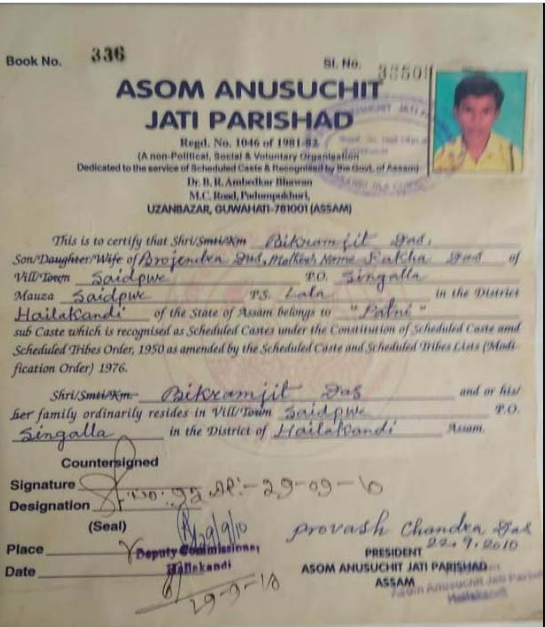 Book No. 336
Sl. No. 33501
ASOM ANUSUCHIT
JATI PARISHAD
Regd. No. 1046 of 1981-82
(A non-Political, Social & Voluntary Organisation
Dedicated to the service of Scheduled Caste & Recognised by the Govt. of Assam)
Dr. B. R. Ambedkar Bhawan
M.C. Road, Padumpukhuri,
UZANBAZAR, GUWAHATI-781001 (ASSAM)
This is to certify that Shri/Smti/Km Bikramjit Das,
Son/Daughter/Wife of Brojendra Das, Mother's Name Rakha Das of
Vill/Town Saidpur P.O. Singalla
Mauza Saidpur P.S. Lala in the District
Hailakandi of the State of Assam belongs to "Patni"
sub Caste which is recognised as Scheduled Castes under the Constitution of Scheduled Caste and
Scheduled Tribes Order, 1950 as amended by the Scheduled Caste and Scheduled Tribes Lists (Modi-
fication Order) 1976.
Shri/Smti/Km Bikramjit Das and or his/
her family ordinarily resides in Vill/Town Saidpur P.O.
Singalla in the District of Hailakandi Assam.
Countersigned
Signature
Designation
(Seal)
Place
Date
Deputy Commissioner
Hailakandi
29-9-10
Provash Chandra Das
22.9.2010
PRESIDENT
ASOM ANUSUCHIT JATI PARISHAD
ASSAM
Hailakandi